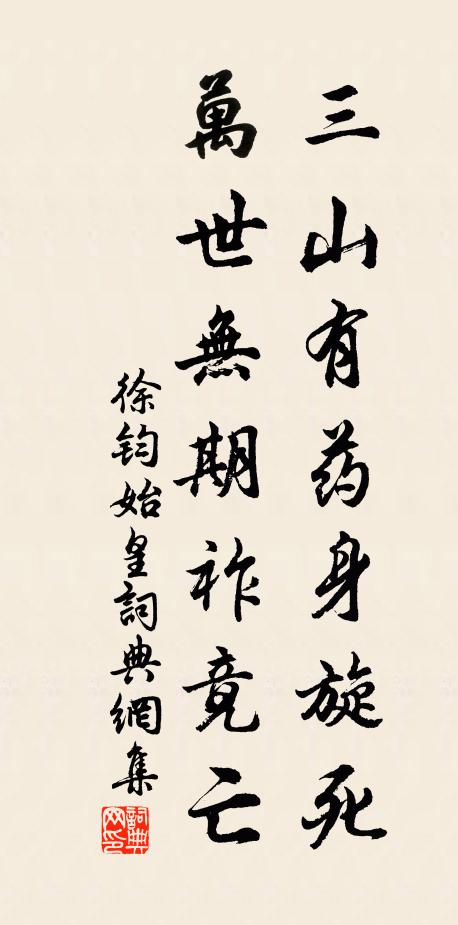 三山有药身旋死
萬世無期祚竟亡
徐钧始皇詞典網集
詞典网印